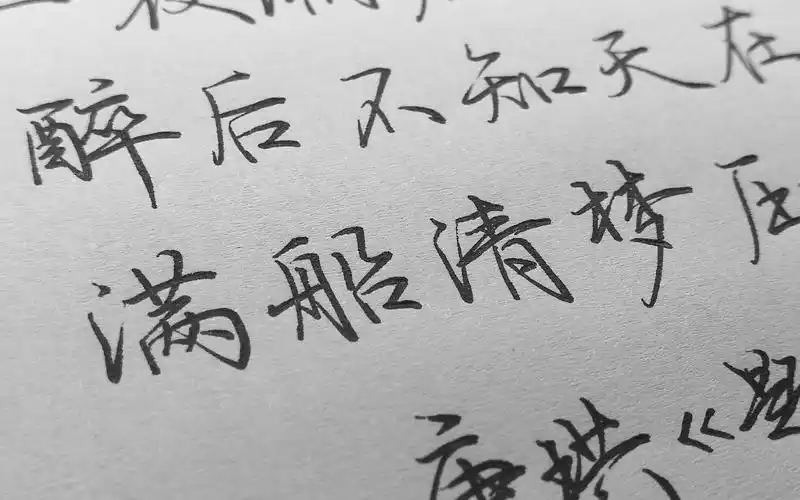 醉后不知天在
满船清梦压
唐珙《